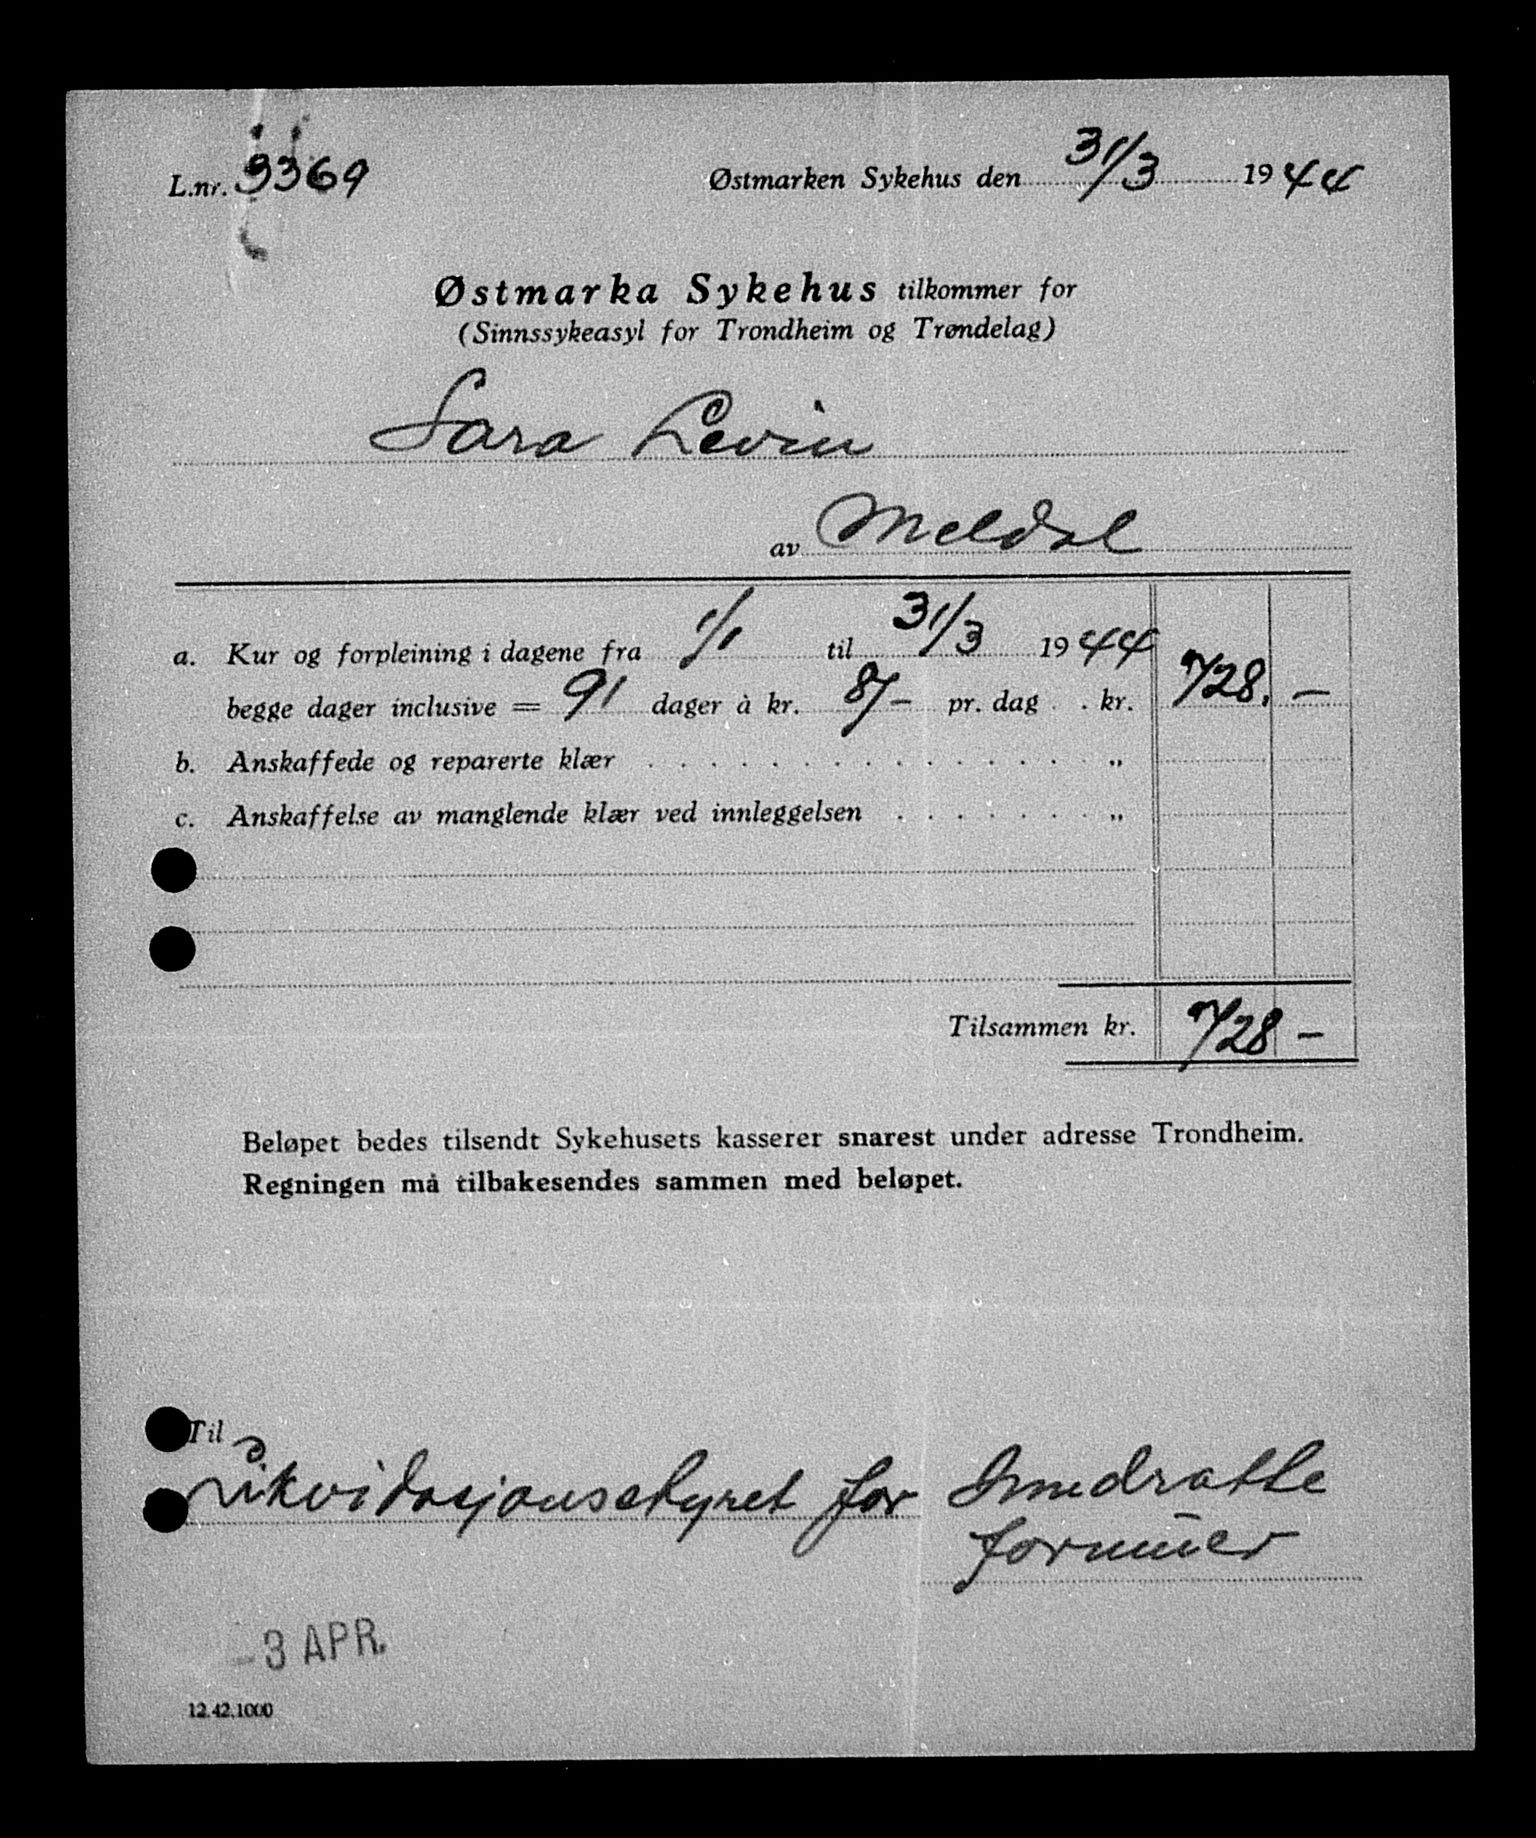 L.nr. 3369 Østmarken Sykehus den 31/3 1944
Østmarka Sykehus tilkommer for
(Sinnssykeasyl for Trondheim og Trøndelag)
Sara Levin
av Meldal
a. Kur og forpleining i dagene fra 1/1 til 31/3 1944
begge dager inclusive = 91 dager à kr. 8/- pr. dag . . kr. 728. —
b. Anskaffede og reparerte klær . . . . . . . . . . . . . . . . „
c. Anskaffelse av manglende klær ved innleggelsen . . . . . . . „
Tilsammen kr. 728 —
Beløpet bedes tilsendt Sykehusets kasserer snarest under adresse Trondheim.
Regningen må tilbakesendes sammen med beløpet.
Til
Likvidasjonsstyret for Inndratte
formuer
-3 APR.
12.42.1000